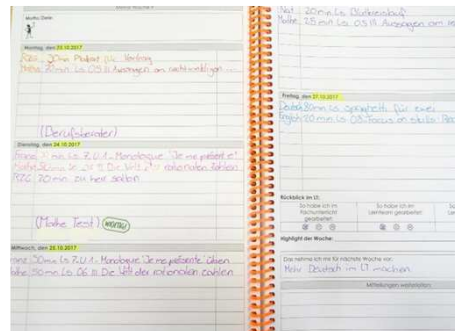 Montag, den 23.10.2017
RZG 20min Plakat für Vortrag
Mathe 20min Ls 05 III Aussagen am rechtwinkligen
(Berufsberater)
Dienstag, den 24.10.2017
min Ls 7.U.1 - Monologue "Je me présente"
Ls III Die Welt der rationalen Zahlen
RZG 20 min
(Mathe Test) WICHTIG!
Mittwoch, den 25.10.2017
30min Ls 7.U.1 - Monologue "Je me présente" üben
Mathe 30min Ls 06 III Die Welt der rationalen Zahlen
Nat 20min Ls Blutkreislauf
Mathe 25 min Ls 05 III Aussagen am
Freitag, den 27.10.2017
Deutsch 30min Ls Spaghetti für zwei
English 20min Ls 03-Focus on skills:
Rückblick im LT:
So habe ich im Fachunterricht gearbeitet:
So habe ich im Lernteam gearbeitet:
Highlight der Woche:
Das nehme ich mir für nächste Woche vor:
Mehr Deutsch im LT machen
Mitteilungen